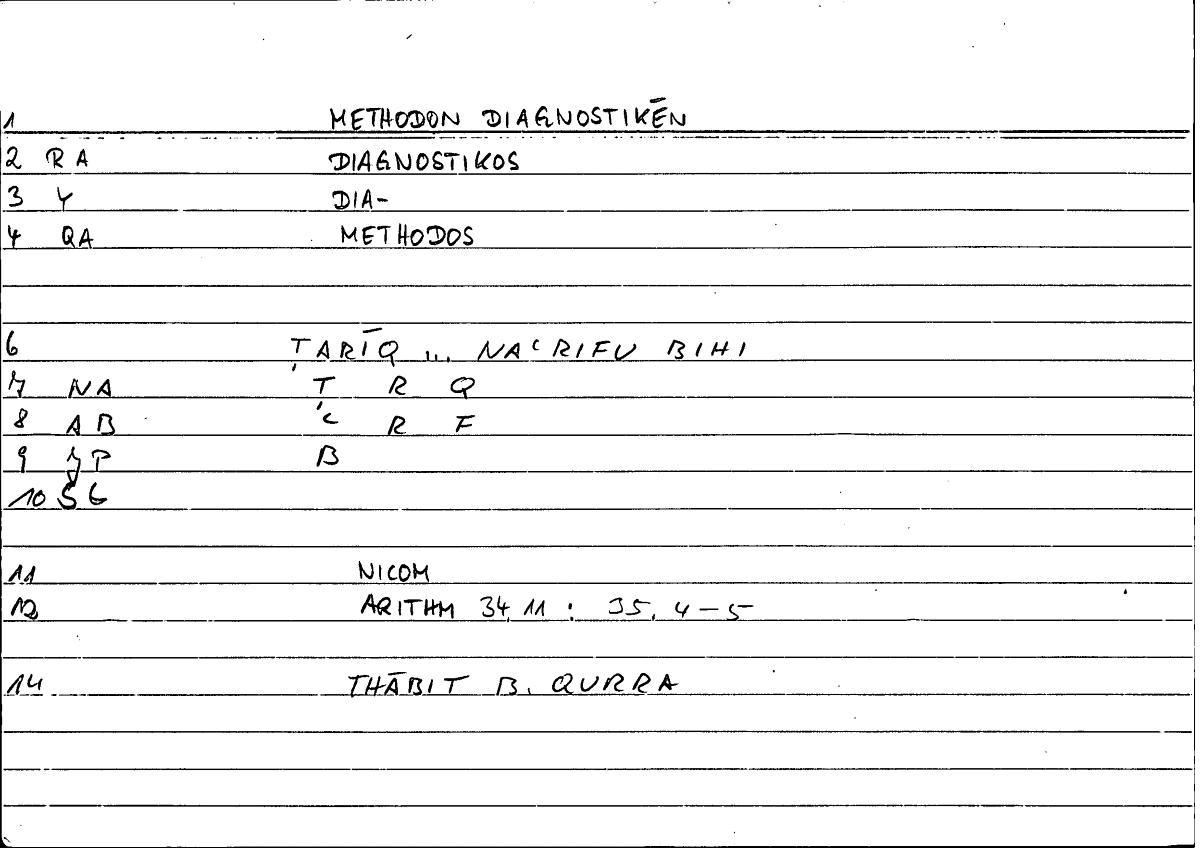 1 METHODON DIAGNOSTIKĒN
2 RA DIAGNOSTIKOS
3 Y DIA-
4 QA METHODOS
6 ṬARĪQ ... NAʿRIFU BIHI
7 NA Ṭ R Q
8 AB ʿ R F
9 P B
10 SG
11 NICOM
12 ARITHM 34,11 : 35,4-5
14 THĀBIT B. QURRA